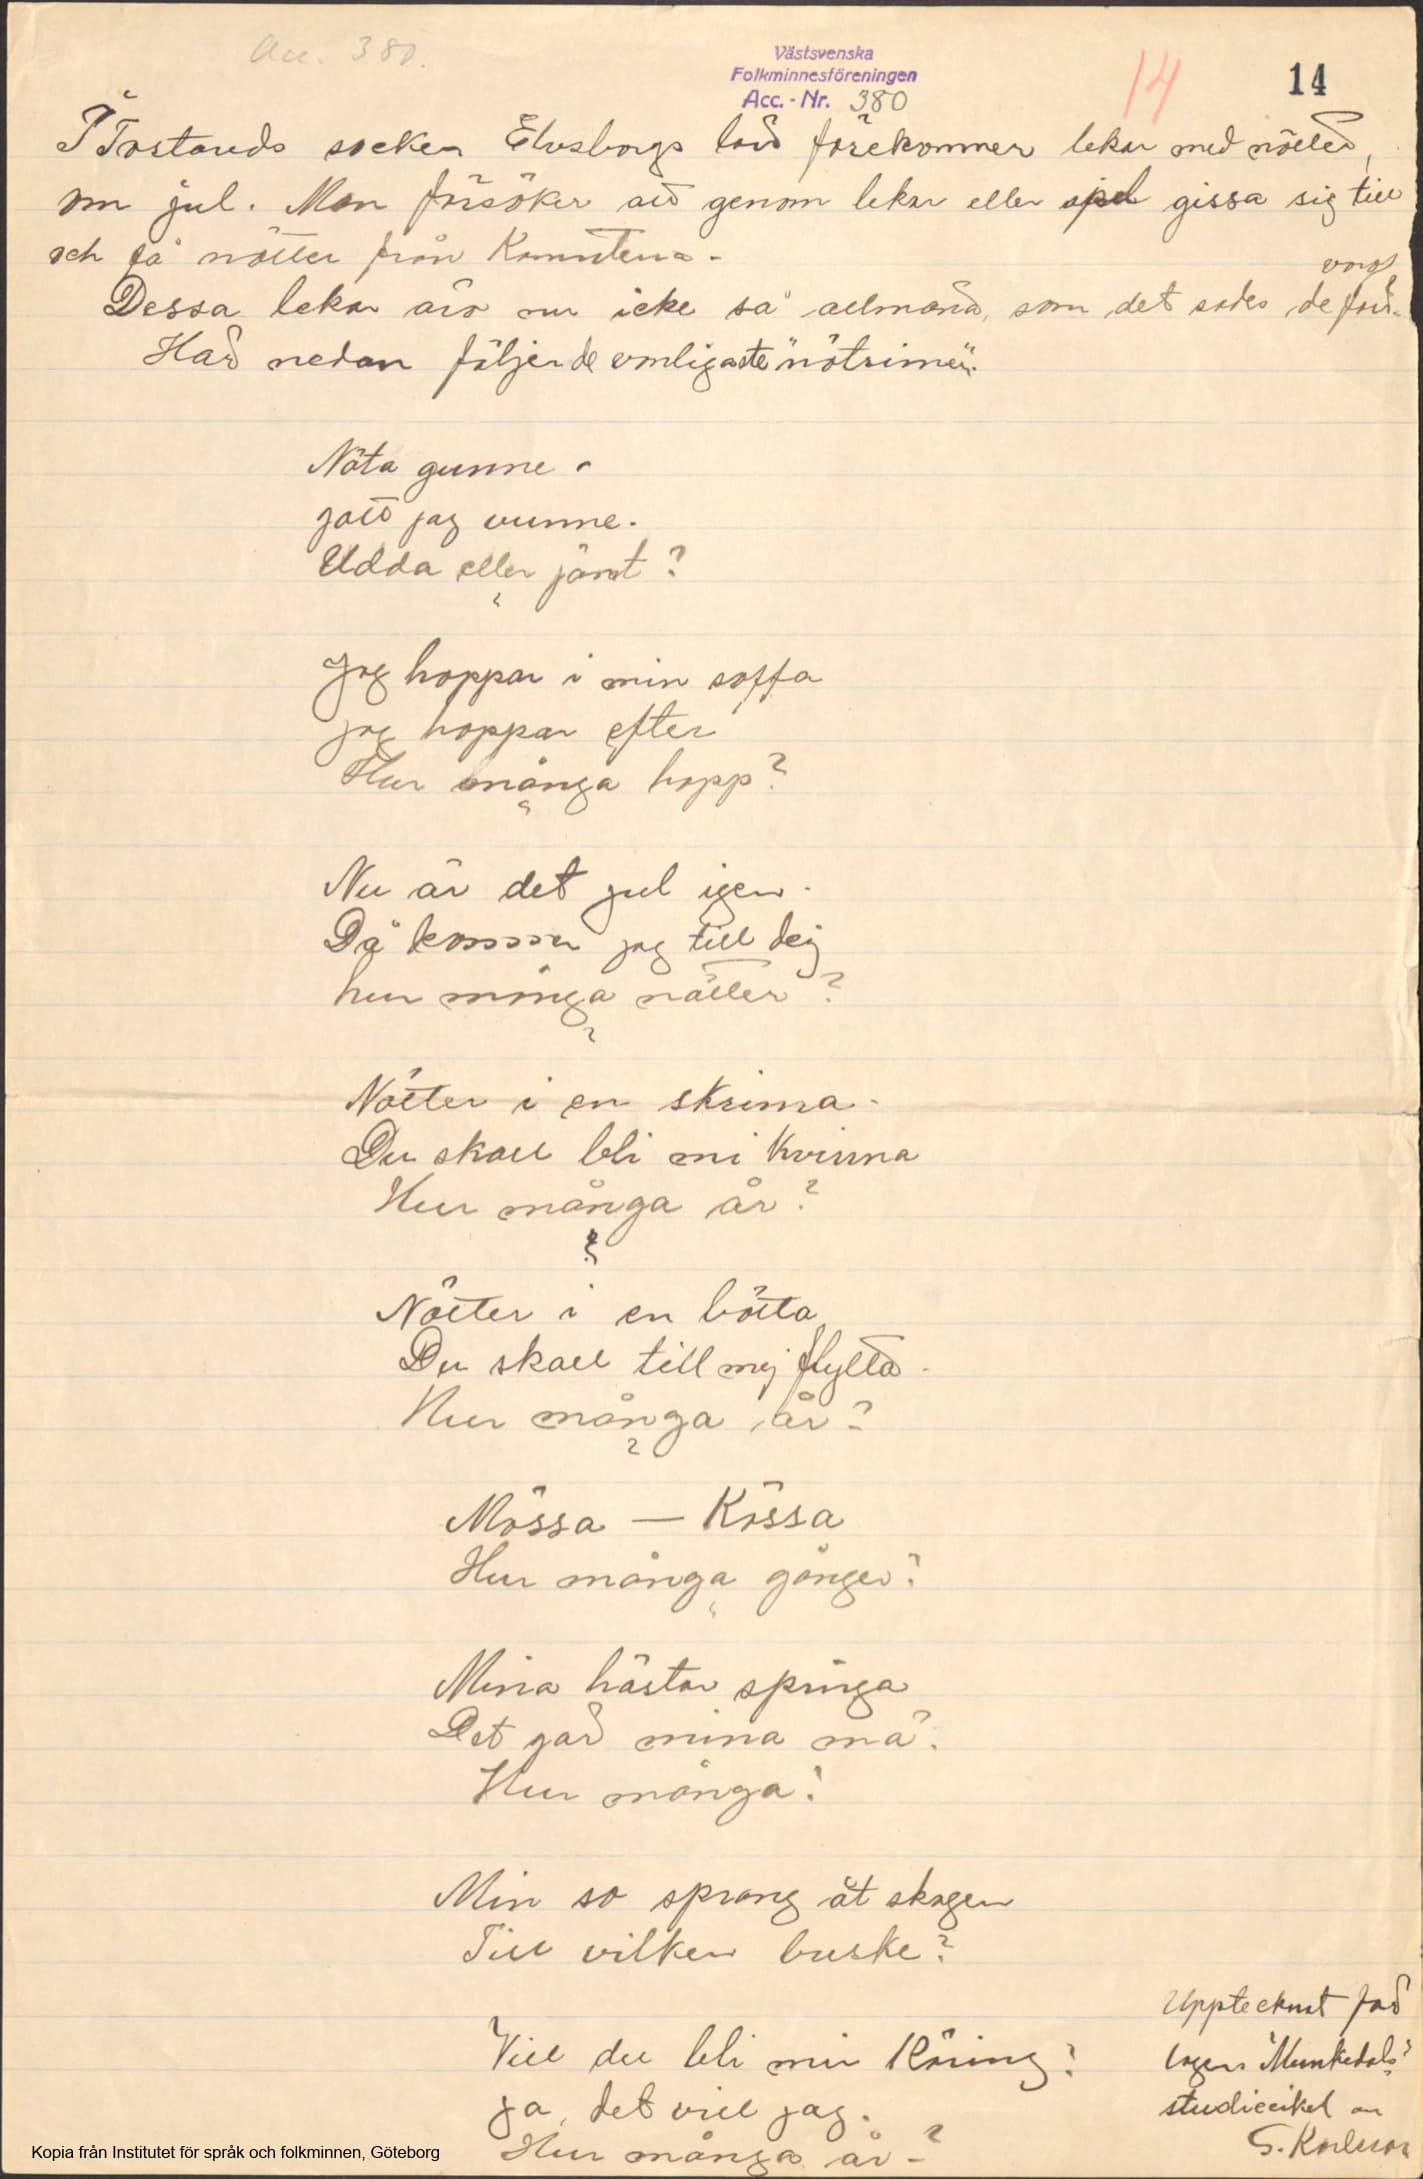 Acc. 380.
Västsvenska
Folkminnesföreningen
Acc.-Nr. 380
14
14
I Tostareds socken Elvsborgs län förekommer lekar med nötter,
om jul. Man försöker att genom lekar eller spel gissa sig till
och få nötter från Kamraterna.
varit
Dessa lekar äro nu icke så allmänna, som det sades de förr.
Här nedan följer de vanligaste "nötrimen".
Nöta gunne
gått jag vunne.
Udda eller jämt?
Jag hoppar i min soffa
jag hoppar efter
Hur många hopp?
Nu är det jul igen.
Då kommer jag till dej
hur många nötter?
Nötter i en skrinna.
Du skall bli mi Kvinna
Hur många år?
Nötter i en bötta
Du skall till mej flytta.
Hur många år?
Mössa — Kössa
Hur många gånger?
Mina hästar springa
Det gör mina må.
Hur många?
Min so sprang åt skogen
Till vilken buske?
Vill du bli min Käring?
ja, det vill jag.
Hur många år?
Upptecknat för
logen "Munkedals"
studiecirkel av
G. Karlsson
Kopia från Institutet för språk och folkminnen, Göteborg